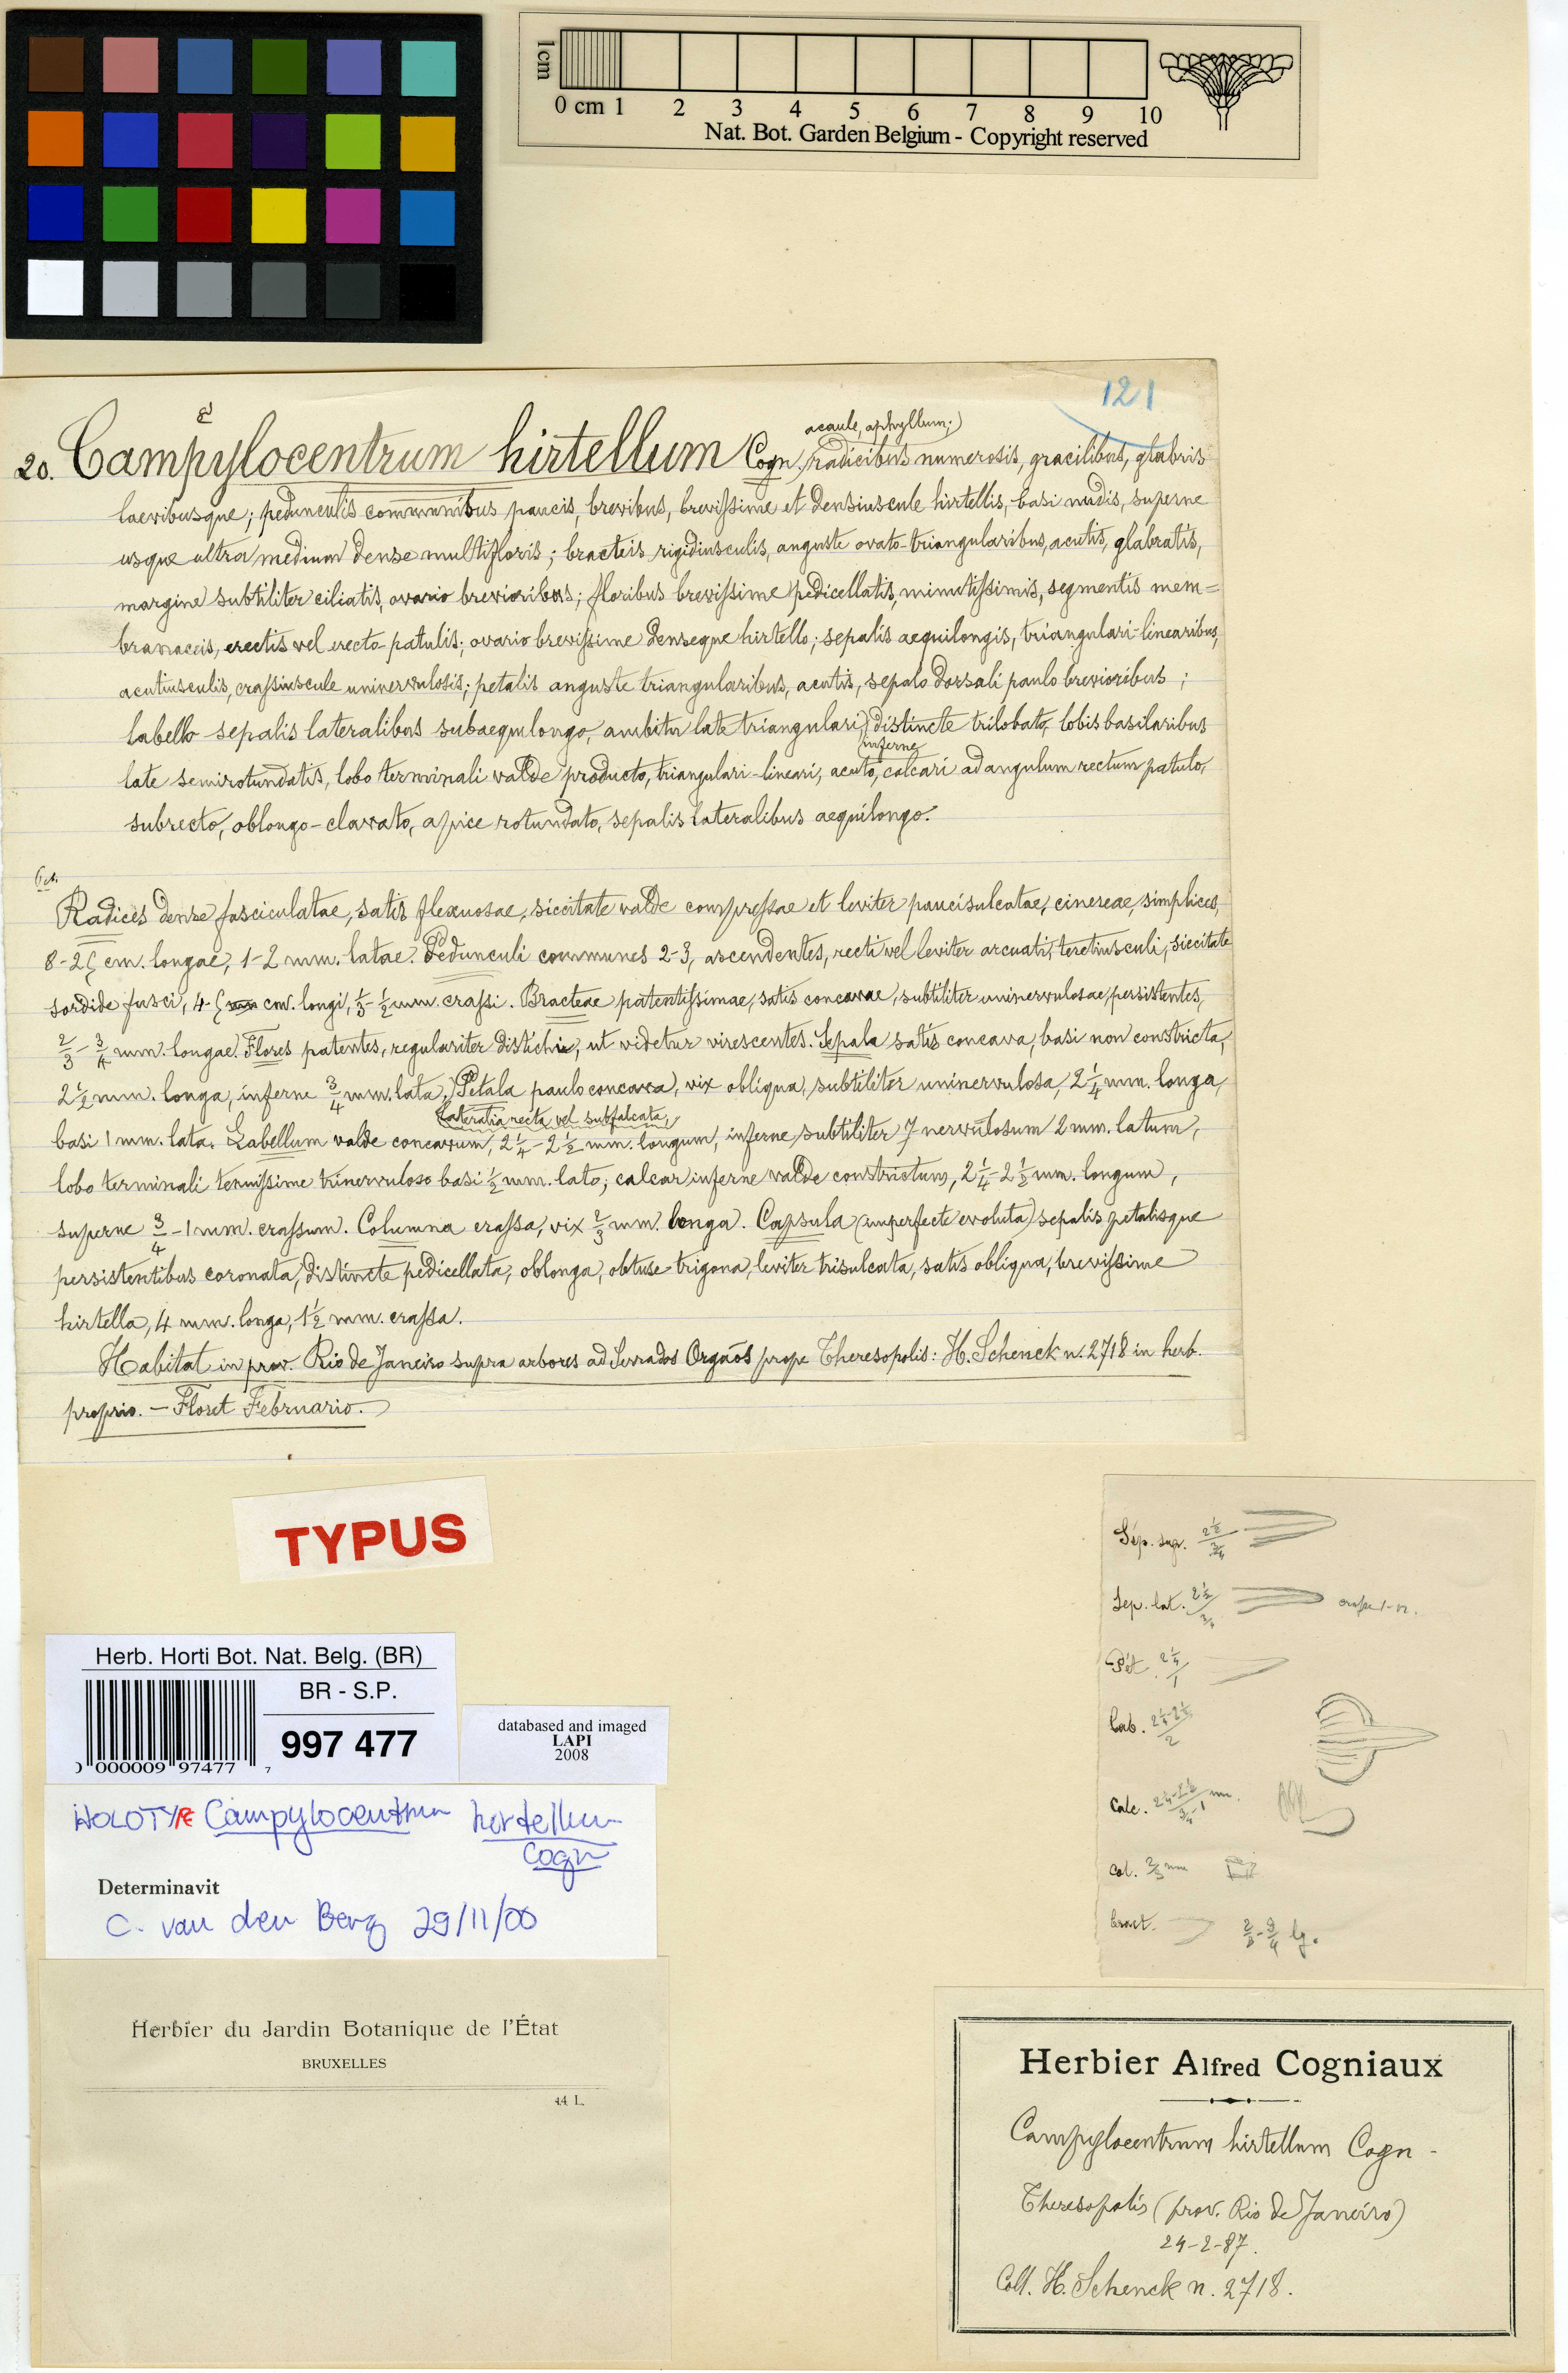 1cm
0 cm 1 2 3 4 5 6 7 8 9 10
Nat. Bot. Garden Belgium - Copyright reserved
121
acaule, aphyllum;
20. Campylocentrum hirtellum Cogn. radicibus numerosis, gracilibus, glabris
laevibusque; pedunculis communibus paucis, brevibus, brevissime et densiuscule hirtellis, basi nudis, superne
usque ultra medium dense multifloris; bracteis rigidiusculis, anguste ovato-triangularibus, acutis, glabratis,
margine subtiliter ciliatis, ovario brevioribus; floribus brevissime pedicellatis, minutissimis, segmentis mem=
branaceis, erectis vel erecto-patulis; ovario brevissime denseque hirtello; sepalis aequilongis, triangulari-linearibus,
acutiusculis, crassiuscule uninervulosis; petalis anguste triangularibus, acutis, sepalo dorsali paulo brevioribus;
labello sepalis lateralibus subaequilongo, ambitu late triangulari, distincte trilobato, lobis basilaribus
inferne
late semirotundatis, lobo terminali valde producto, triangulari-lineari, acuto, calcari ad angulum rectum patulo,
subrecto, oblongo-clavato, apice rotundato, sepalis lateralibus aequilongo.
Radices dense fasciculatae, satis flexuosae, siccitate valde compressae et leviter paucisulcatae, cinereae, simplices,
8-25 cm. longae, 1-2 mm. latae. Pedunculi communes 2-3, ascendentes, recti vel leviter arcuati, teretiusculi, siccitate
sordide fusci, 4-5 cm. longi, 1/3-1/2 mm. crassi. Bracteae patentissimae, satis concavae, subtiliter uninervulosae, persistentes,
2/3-3/4 mm. longae. Flores patentes, regulariter distichi, ut videtur virescentes. Sepala satis concava, basi non constricta,
2 1/2 mm. longa, inferne 3/4 mm. lata, Petala paulo concava, vix obliqua, subtiliter uninervulosa, 2 1/4 mm. longa,
lateralia recta vel subfalcata,
basi 1 mm. lata. Labellum valde concavum, 2 1/4-2 1/2 mm. longum, inferne subtiliter 7 nervulosum 2 mm. latum,
lobo terminali tenuissime trinervuloso basi 1/2 mm. lato; calcar inferne valde constrictum, 2 1/4-2 1/2 mm. longum,
superne 3/4-1 mm. crassum. Columna crassa, vix 2/3 mm. longa. Capsula (imperfecte evoluta) sepalis petalisque
persistentibus coronata, distincte pedicellata, oblonga, obtuse trigona, leviter trisulcata, satis obliqua, brevissime
hirtella, 4 mm. longa, 1 1/2 mm. crassa.
Habitat in prov. Rio de Janeiro supra arbores ad Serra dos Orgaõs prope Theresopolis: H. Schenck n. 2718 in herb.
proprio. — Floret Februario.
TYPUS
Sép. sup. 2 1/2 / 3/4
Sep. lat. 2 1/2 / 3/4
Pét. 2 1/4 / 1
Lab. 2 1/4-2 1/2 / 2
Calc. 2 1/4-2 1/2 / 3/4-1 mm.
Col. 2/3 mm
Bract. 2/3-3/4 lg.
Herb. Horti Bot. Nat. Belg. (BR)
BR - S.P.
997 477
000009 97477 7
databased and imaged
LAPI
2008
HOLOTYPE Campylocentrum hirtellum
Cogn
Determinavit
C. van den Berg 29/11/00
Herbier du Jardin Botanique de l'État
BRUXELLES
44 L.
Herbier Alfred Cogniaux
Campylocentrum hirtellum Cogn -
Theresopolis (prov. Rio de Janeiro)
24-2-87.
Coll. H. Schenck n. 2718.